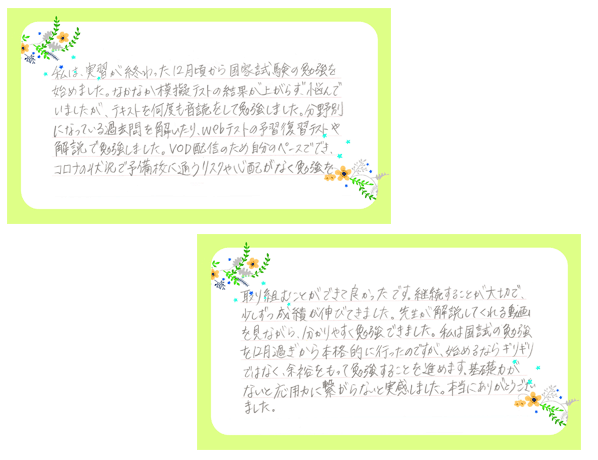 私は、実習が終わった12月頃から国家試験の勉強を
始めました。なかなか模擬テストの結果が上がらず悩んで
いましたが、テキストを何度も音読をして勉強しました。分野別
になっている過去問を解いたり、webテストの予習復習テストや
解説で勉強しました。VOD配信のため自分のペースででき、
コロナの状況で予備校に通うリスクや心配がなく勉強を
取り組むことができて良かったです。継続することが大切で、
少しずつ成績が伸びてきました。先生が解説してくれる動画
を見ながら、分かりやすく勉強できました。私は国試の勉強
を12月過ぎから本格的に行ったのですが、始めるならギリギリ
ではなく、余裕をもって勉強することを進めます。基礎力が
ないと応用力に繋がらないと実感しました。本当にありがとうござい
ました。